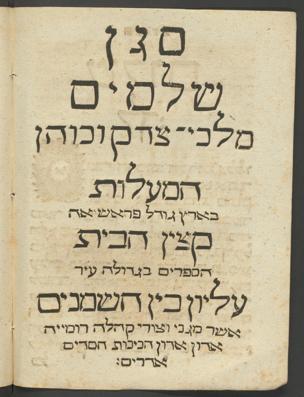 סגן
שלמים
מלכי־צדק וכוהן
המעלות
בארץ גודל פראשיאה
קצין הבית
הספרים בגדולה עיר
עליון בין חשמנים
אשר מגני וצורי קהלה רומייה
ארון ארון הניבות חסדים
אדרים: